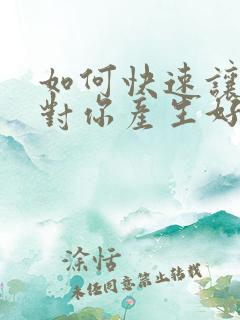 如何快速讓
對你產生好
涂恬
未经同意禁止转载